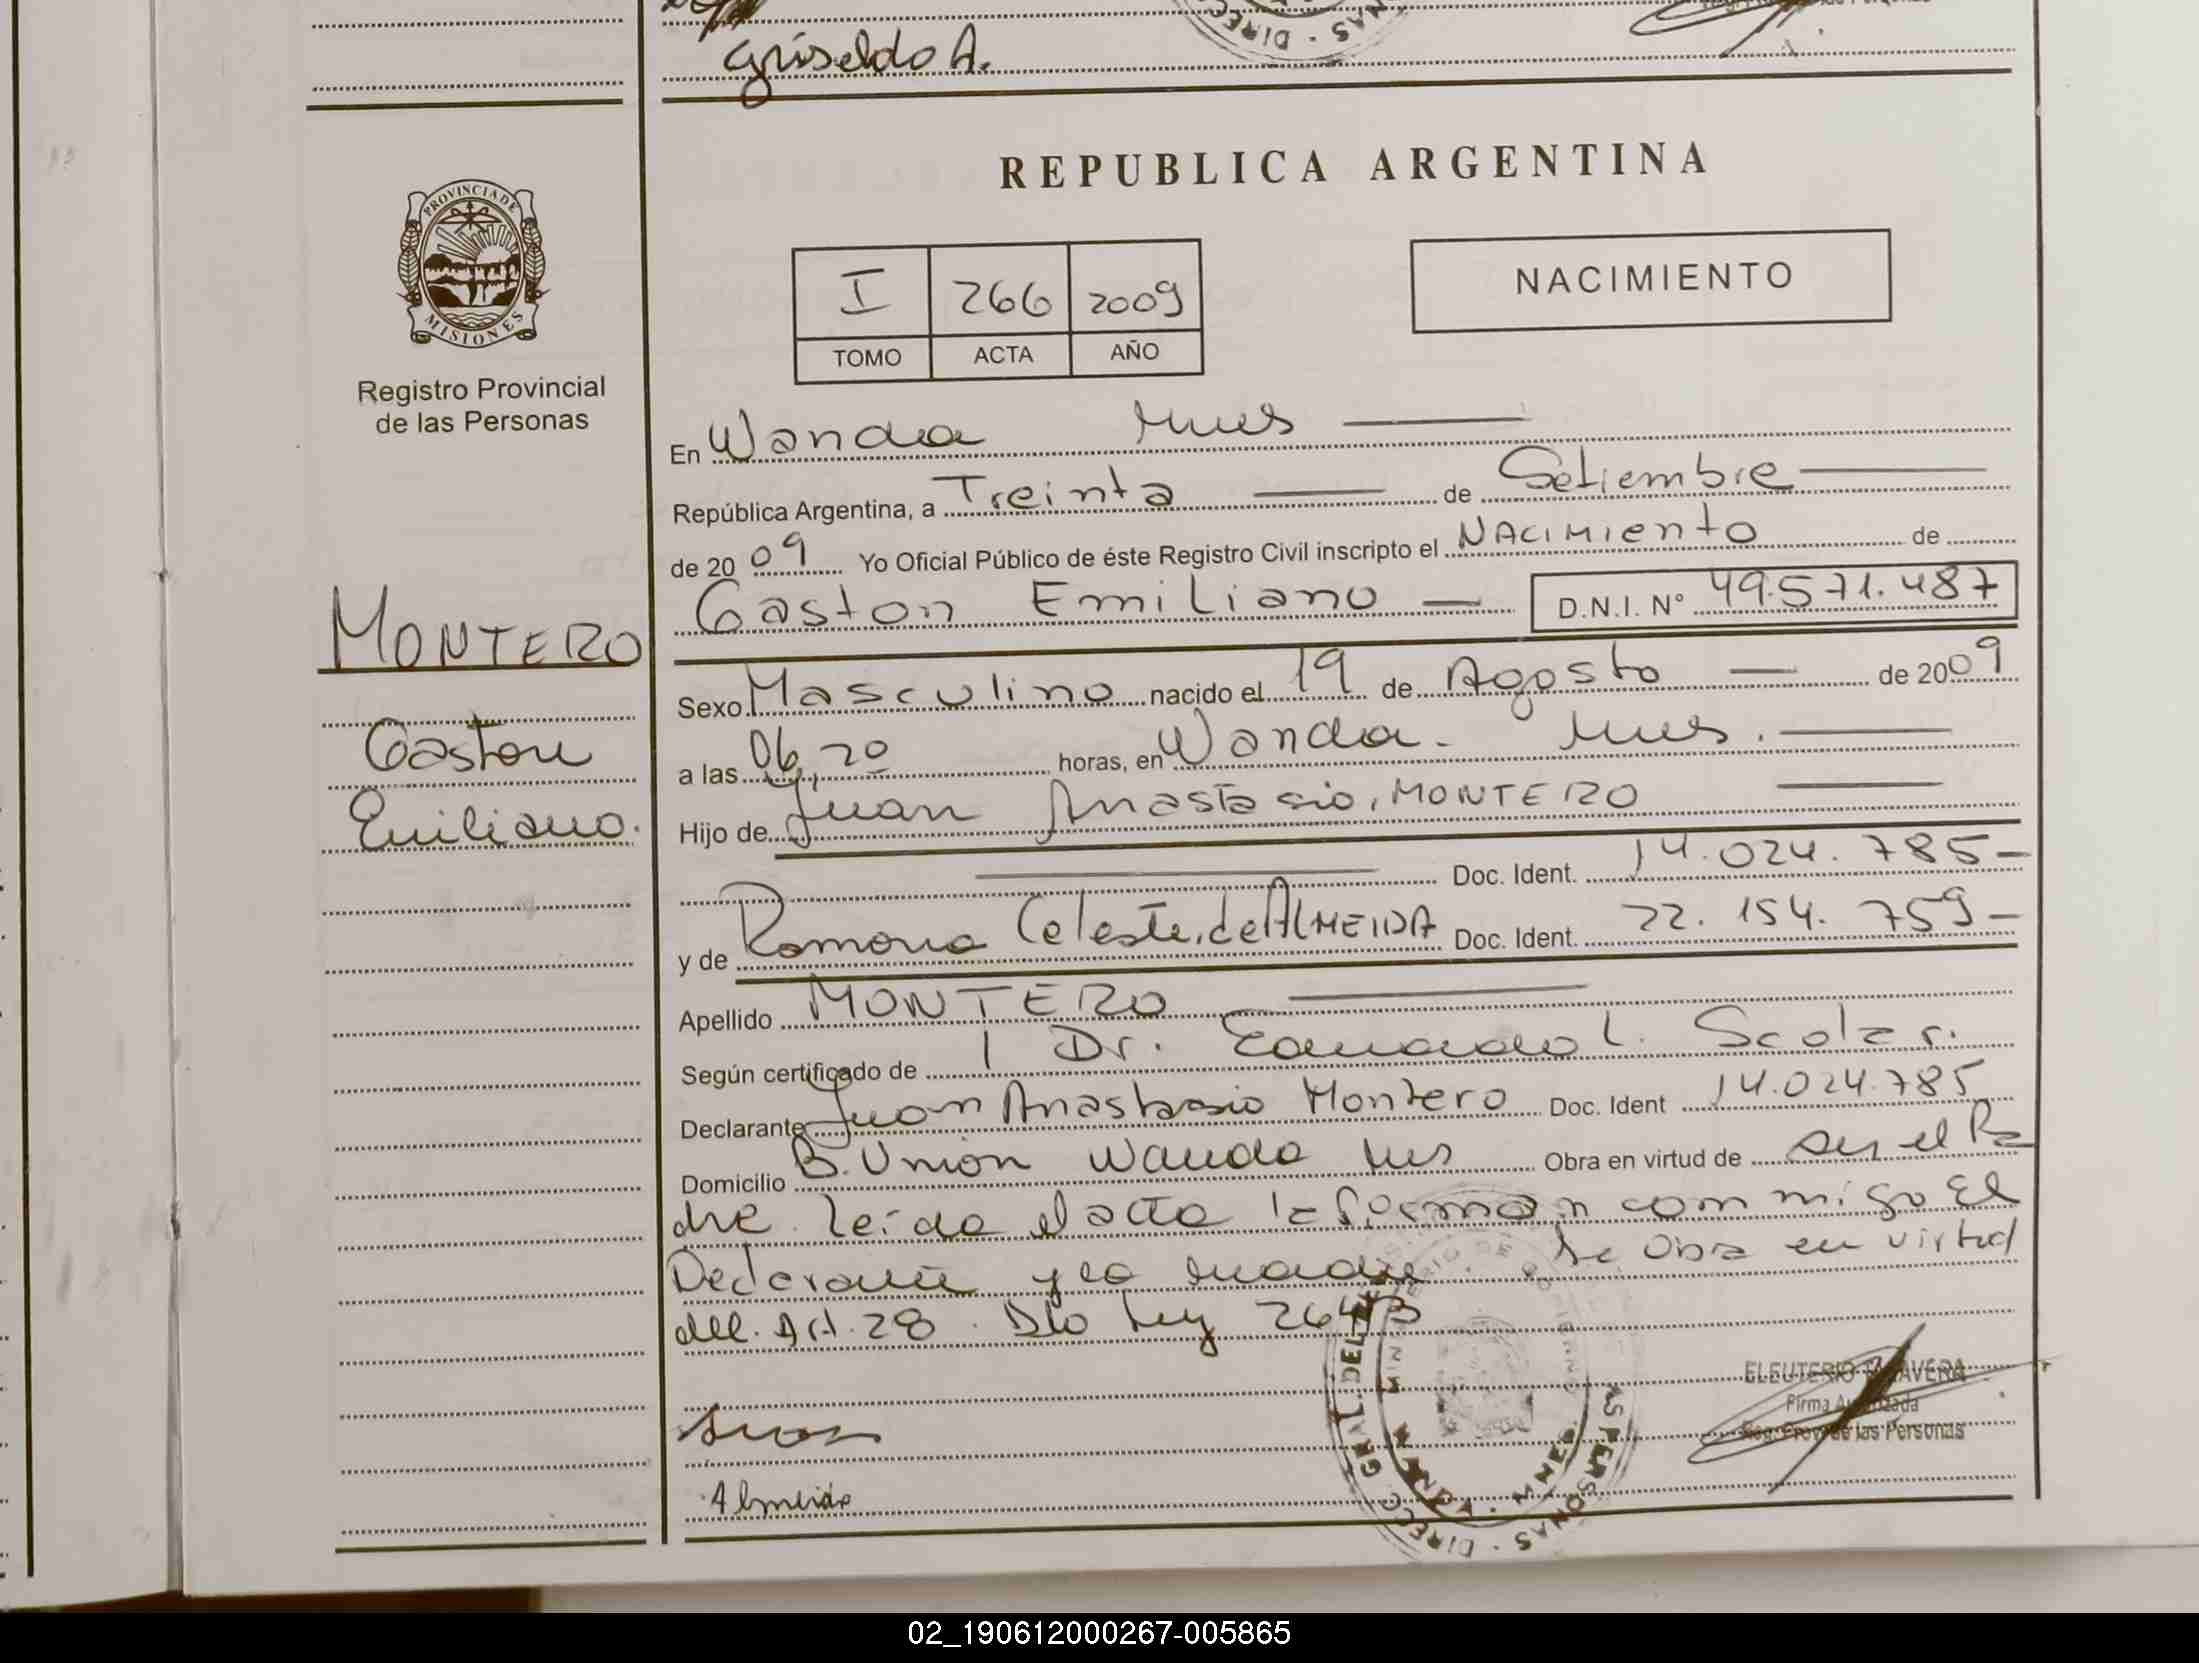 Griseldo A.
DIRECC
REPUBLICA ARGENTINA
PROVINCIA DE MISIONES
Registro Provincial
de las Personas
I 266 2009
TOMO ACTA AÑO
NACIMIENTO
En Wanda Mnes
República Argentina, a Treinta de Setiembre
de 2009 Yo Oficial Público de éste Registro Civil inscripto el Nacimiento de
Gaston Emiliano D.N.I. N° 49.571.487
MONTERO
Gaston
Emiliano.
Sexo Masculino nacido el 19 de Agosto de 2009
a las 06,20 horas, en Wanda. Mnes.
Hijo de Juan Anastasio, MONTERO
Doc. Ident. 14.024.785
y de Ramona Celeste, de ALMEIDA Doc. Ident. 22.154.759
Apellido MONTERO
Según certificado de Dr. Eduardo L. Scolar.
Declarante Juan Anastasio Montero Doc. Ident 14.024.785
Domicilio B. Union Wanda Mnes Obra en virtud de ser el Pa
dre. Leida el acta la forman con migo El
Declarante y la madre Se Obra en virtud
del. Art. 28. Dto Ley
ELEUTERIO TALAVERA
Firma Autorizada
Reg. Prov. de las Personas
Almeida
MINISTERIO DE GOBIERNO
WANDA - MNES
DIRECC. GRAL. DEL PERSONAS
02_190612000267-005865